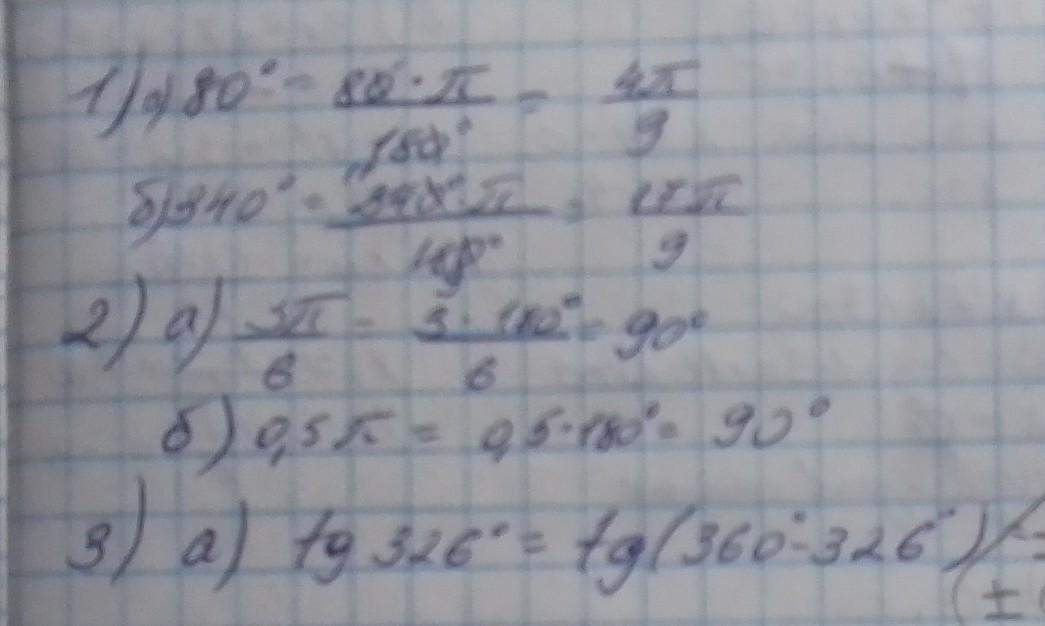 1) а) 80° = 80° · π / 180° = 4π / 9
б) 340° = 340° · π / 180° = 17π / 9
2) а) 3π / 6 = 3 · 180° / 6 = 90°
б) 0,5π = 0,5 · 180° = 90°
3) а) tg 326° = tg (360° - 326°) =
(±